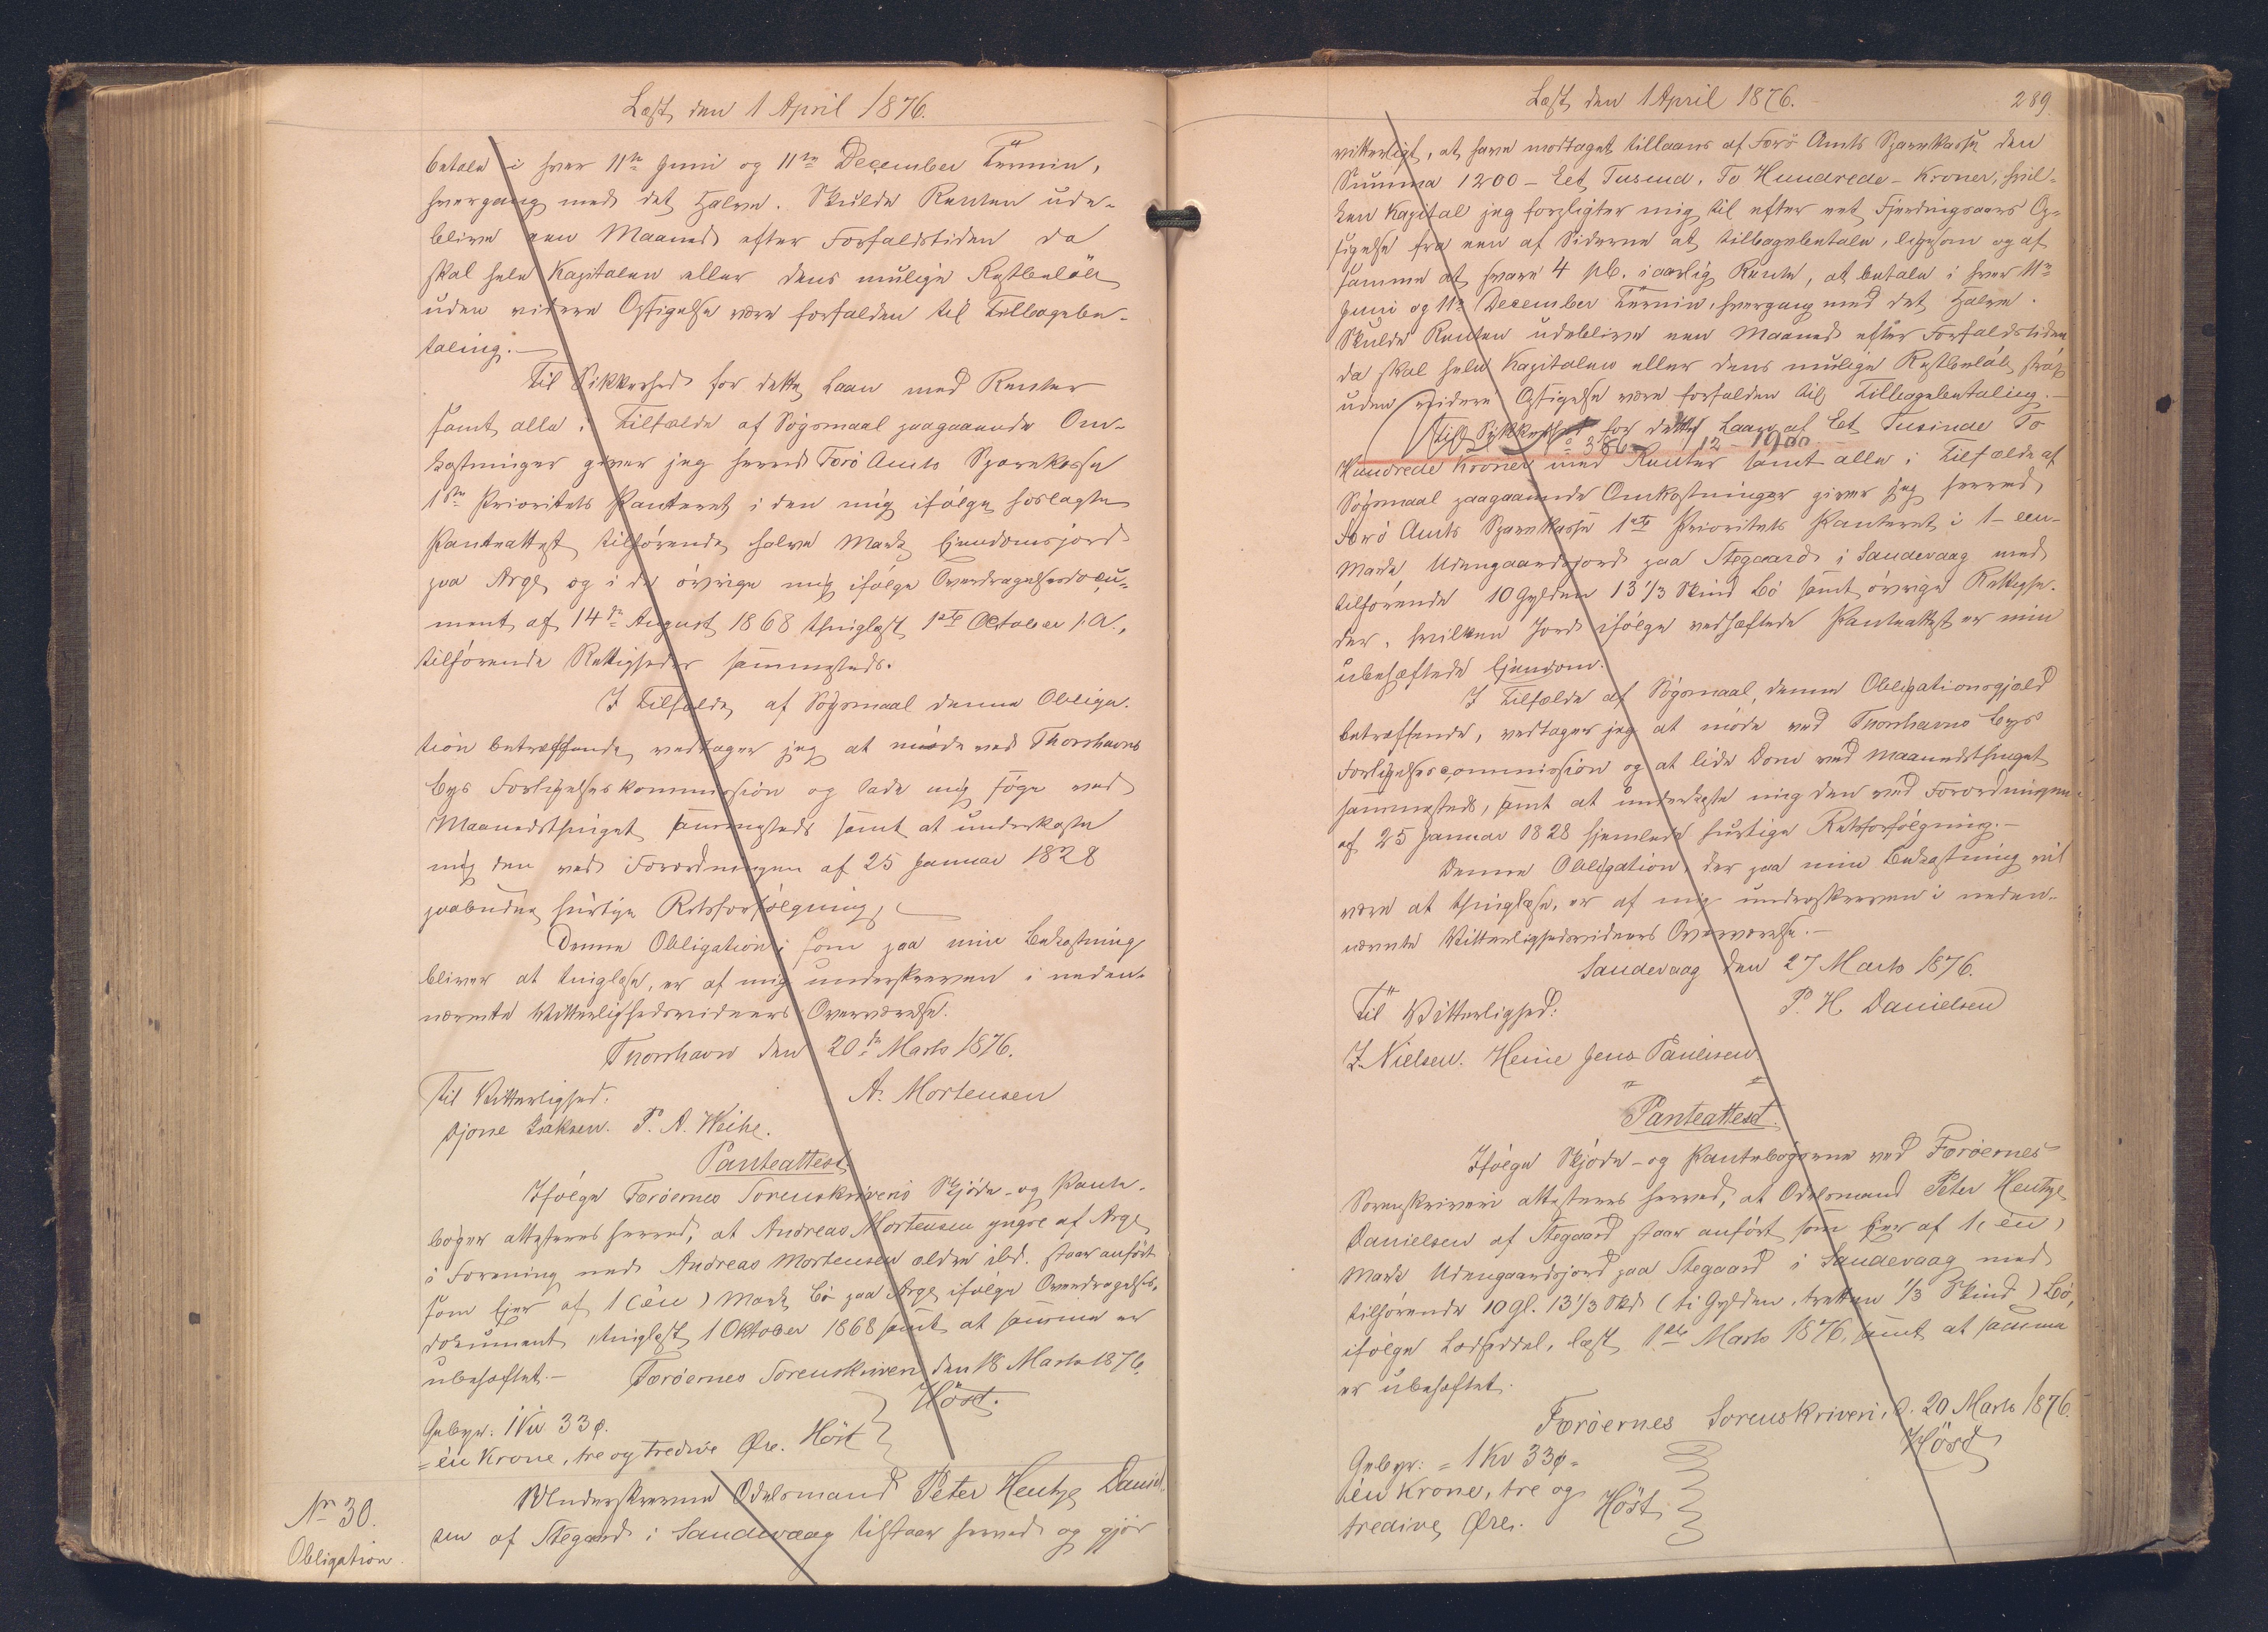 Læst den 1 April 1876.
betale i hver 11te Juni og 11te December Termin,
hvergang med det Halve. Skulde Renten ude-
blive een Maaned efter Forfaldstiden da
skal hele Kapitalen eller dens mulige Restbeløb
uden videre Opsigelse være forfalden til Tilbagebe-
taling.—
Til Sikkerhed for dette Laan med Renter
samt alle i Tilfælde af Søgsmaal paagaaende Om-
kostninger giver jeg herved Færø Amts Sparekasse
1ste Prioritets Panteret i den mig ifølge hoslagte
Panteattest tilhørende halve Mark Ejendomsjord
paa Arge og i de øvrige mig ifølge Overdragelsesdocu-
ment af 14de August 1868 thinglæst 1ste October s.A.,
tilhørende Rettigheder sammesteds.
I Tilfælde af Søgsmaal denne Obliga-
tion betræffende, vedtager jeg at møde ved Thorshavns
Byes Forligelseskommission og lade mig søge ved
Maanedsthinget sammesteds samt at underkaste
mig den ved Forordningen af 25 Januar 1828
paabudne hurtige Retsforfølgning.
Denne Obligation, som paa min Bekostning
bliver at tinglæse, er af mig underskreven i neden-
nævnte Vitterlighedsvidners Overværelse.
Thorshavn den 20de Marts 1876.
Til Vitterlighed: A. Mortensen
Djone Isaksen. P. A. Weihe.
Panteattest.
Ifølge Færøernes Sorenskriveris Skjøde- og Pante-
bøger attesteres herved, at Andreas Mortensen yngre af Arge
i Forening med Andreas Mortensen ældre ibd. staar anført
som Ejer af 1 (een) Mark Bø paa Arge ifølge Overdragelses-
dokument thinglæst 1 Oktober 1868 samt at samme er
ubehæftet.— Færøernes Sorenskriveri den 18 Marts 1876.
Høst.
Gebyr: 1 Kr 33 ø.
= én Krone, tre og tredive Øre. Høst
No 30. Underskrevne Odelsmand Peter Hentze Daniel-
Obligation. sen af Stegaard i Sandevaag tilstaar herved og gjør
Læst den 1 April 1876. 289
vitterligt, at have modtaget tillaans af Færø Amts Sparekasse den
Summa 1200 – Eet Tusend, To Hundrede – Kroner, hvil-
ken Kapital jeg forpligter mig til efter eet Fjerdingaars Op-
sigelse fra een af Siderne at tilbagebetale, ligesom og af
samme at svare 4 pC. i aarlig Rente, at betale i hver 11te
Juni og 11te December Termin, hvergang med det Halve.
Skulde Renten udeblive een Maaned efter Forfaldstiden
da skal hele Kapitalen eller dens mulige Restbeløb strax
uden videre Opsigelse være forfalden til Tilbagebetaling.—
Til Sikkerhed for dette Laan af Eet Tusinde To
386 12 – 1900
Hundrede Kroner med Renter samt alle i Tilfælde af
Søgsmaal paagaaende Omkostninger giver jeg herved
Færø Amts Sparekasse 1ste Prioritets Panteret i 1 – een –
Mark Udengaardsjord paa Stegaard i Sandevaag med
tilhørende 10 Gylden 13 1/3 Skind Bø samt øvrige Rettighe-
der, hvilken Jord ifølge vedhæftede Panteattest er min
ubehæftede Ejendom.
I Tilfælde af Søgsmaal, denne Obligationsgjæld
betræffende, vedtager jeg at møde ved Thorshavns Byes
Forligelsescommission og at lide Dom ved Maanedsthinget
sammesteds, samt at underkaste mig den ved Forordningen
af 25 Januar 1828 hjemlede hurtige Retsforfølgning.—
Denne Obligation, der paa min Bekostning vil
være at thinglæse, er af mig underskreven i neden-
nævnte Vitterlighedsvidners Overværelse.—
Sandevaag den 27 Marts 1876.
Til Vitterlighed: P. H. Danielsen
J. Nielsen. Heine Jens Paulsen.
Panteattest.
Ifølge Skjøde- og Pantebøgerne ved Færøernes
Sorenskriveri attesteres herved, at Odelsmand Peter Hentze
Danielsen af Stegaard staar anført som Ejer af 1, én,
Mark Udengaardsjord paa Stegaard i Sandevaag med
tilhørende 10 Gl. 13 1/3 Skd. (ti Gylden, tretten 1/3 Skind) Bø,
ifølge Lodseddel, læst 1ste Marts 1876, samt at samme
er ubehæftet.
Færøernes Sorenskriveri, d. 20 Marts 1876.
Høst
Gebyr: = 1 Kr 33 ø =
én Krone, tre og Høst
tredive Øre.